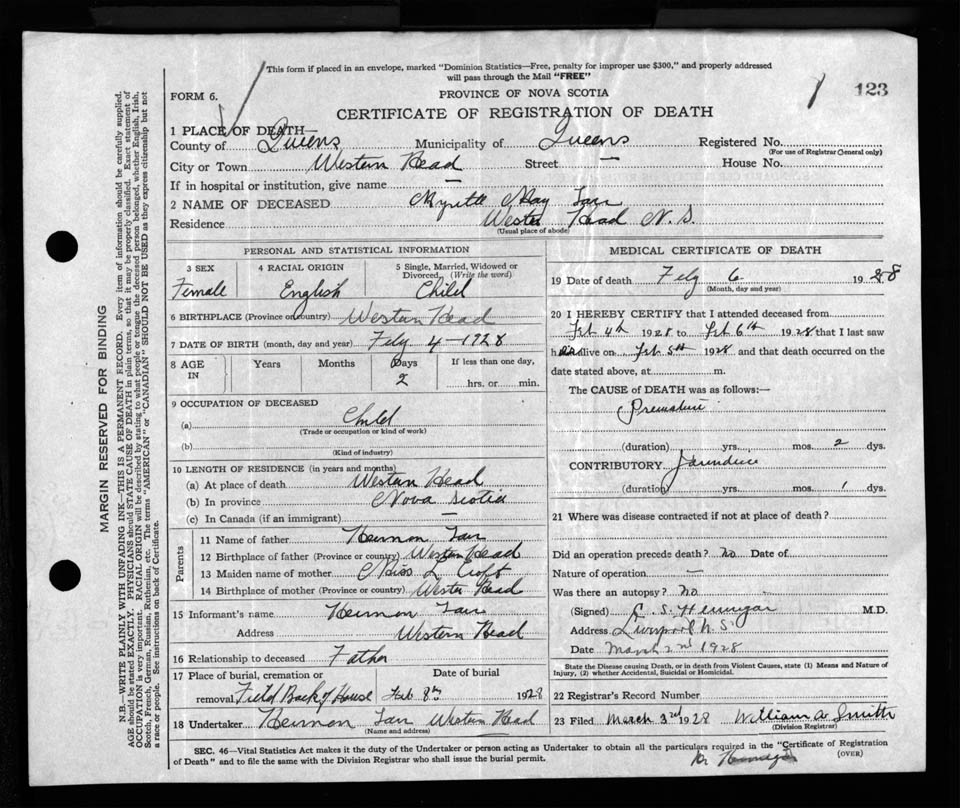 This form if placed in an envelope, marked "Dominion Statistics—Free, penalty for improper use $300," and properly addressed
will pass through the Mail "FREE"
FORM 6.
PROVINCE OF NOVA SCOTIA
123
CERTIFICATE OF REGISTRATION OF DEATH
1 PLACE OF DEATH—
County of Queens Municipality of Queens Registered No.
(For use of Registrar General only)
City or Town Western Head Street — House No.
If in hospital or institution, give name —
2 NAME OF DECEASED Myrtle May
Residence Western Head N. S.
(Usual place of abode)
PERSONAL AND STATISTICAL INFORMATION
3 SEX 4 RACIAL ORIGIN 5 Single, Married, Widowed or Divorced (Write the word)
Female English Child
6 BIRTHPLACE (Province or country) Western Head
7 DATE OF BIRTH (month, day and year) Feby 4 - 1928
8 AGE IN Years Months Days If less than one day,
2 hrs. or min.
9 OCCUPATION OF DECEASED
(a) Child
(Trade or occupation or kind of work)
(b)
(Kind of industry)
10 LENGTH OF RESIDENCE (in years and months)
(a) At place of death Western Head
(b) In province Nova Scotia
(c) In Canada (if an immigrant) —
Parents
11 Name of father
12 Birthplace of father (Province or country) Western Head
13 Maiden name of mother Miss L Croft
14 Birthplace of mother (Province or country) Western Head
15 Informant's name
Address Western Head
16 Relationship to deceased Father
17 Place of burial, cremation or Date of burial
removal Field Back of House Feb 8th 1928
18 Undertaker Western Head
(Name and address)
MEDICAL CERTIFICATE OF DEATH
19 Date of death Feby 6 1928
(Month, day and year)
20 I HEREBY CERTIFY that I attended deceased from
Feb 4th 1928 to Feb 6th 1928 that I last saw
h alive on Feb 5th 1928 and that death occurred on the
date stated above, at m.
The CAUSE of DEATH was as follows:—
Premature
(duration) yrs. mos. 2 dys.
CONTRIBUTORY Jaundice
(duration) yrs. mos. 1 dys.
21 Where was disease contracted if not at place of death?
Did an operation precede death? No Date of
Nature of operation —
Was there an autopsy? No
(Signed) C. S. Hennigar M.D.
Address Liverpool N. S.
Date March 2nd 1928
State the Disease causing Death, or in death from Violent Causes, state (1) Means and Nature of
Injury, (2) whether Accidental, Suicidal or Homicidal.
22 Registrar's Record Number
23 Filed March 3rd 1928 William A Smith
(Division Registrar)
SEC. 46—Vital Statistics Act makes it the duty of the Undertaker or person acting as Undertaker to obtain all the particulars required in the "Certificate of Registration
of Death" and to file the same with the Division Registrar who shall issue the burial permit.
(OVER)
Dr Hennigar
MARGIN RESERVED FOR BINDING
N.B.—WRITE PLAINLY WITH UNFADING INK—THIS IS A PERMANENT RECORD. Every item of information should be carefully supplied.
AGE should be stated EXACTLY. PHYSICIANS should STATE CAUSE OF DEATH in plain terms, so that it may be properly classified. Exact statement of
OCCUPATION is very important. RACIAL ORIGIN will be described by stating to what people or tongue the deceased person belonged, whether English, Irish,
Scotch, French, German, Russian, Ruthenian, etc. The terms "AMERICAN" or "CANADIAN" SHOULD NOT BE USED as they express citizenship but not
a race or people. See instructions on back of Certificate.